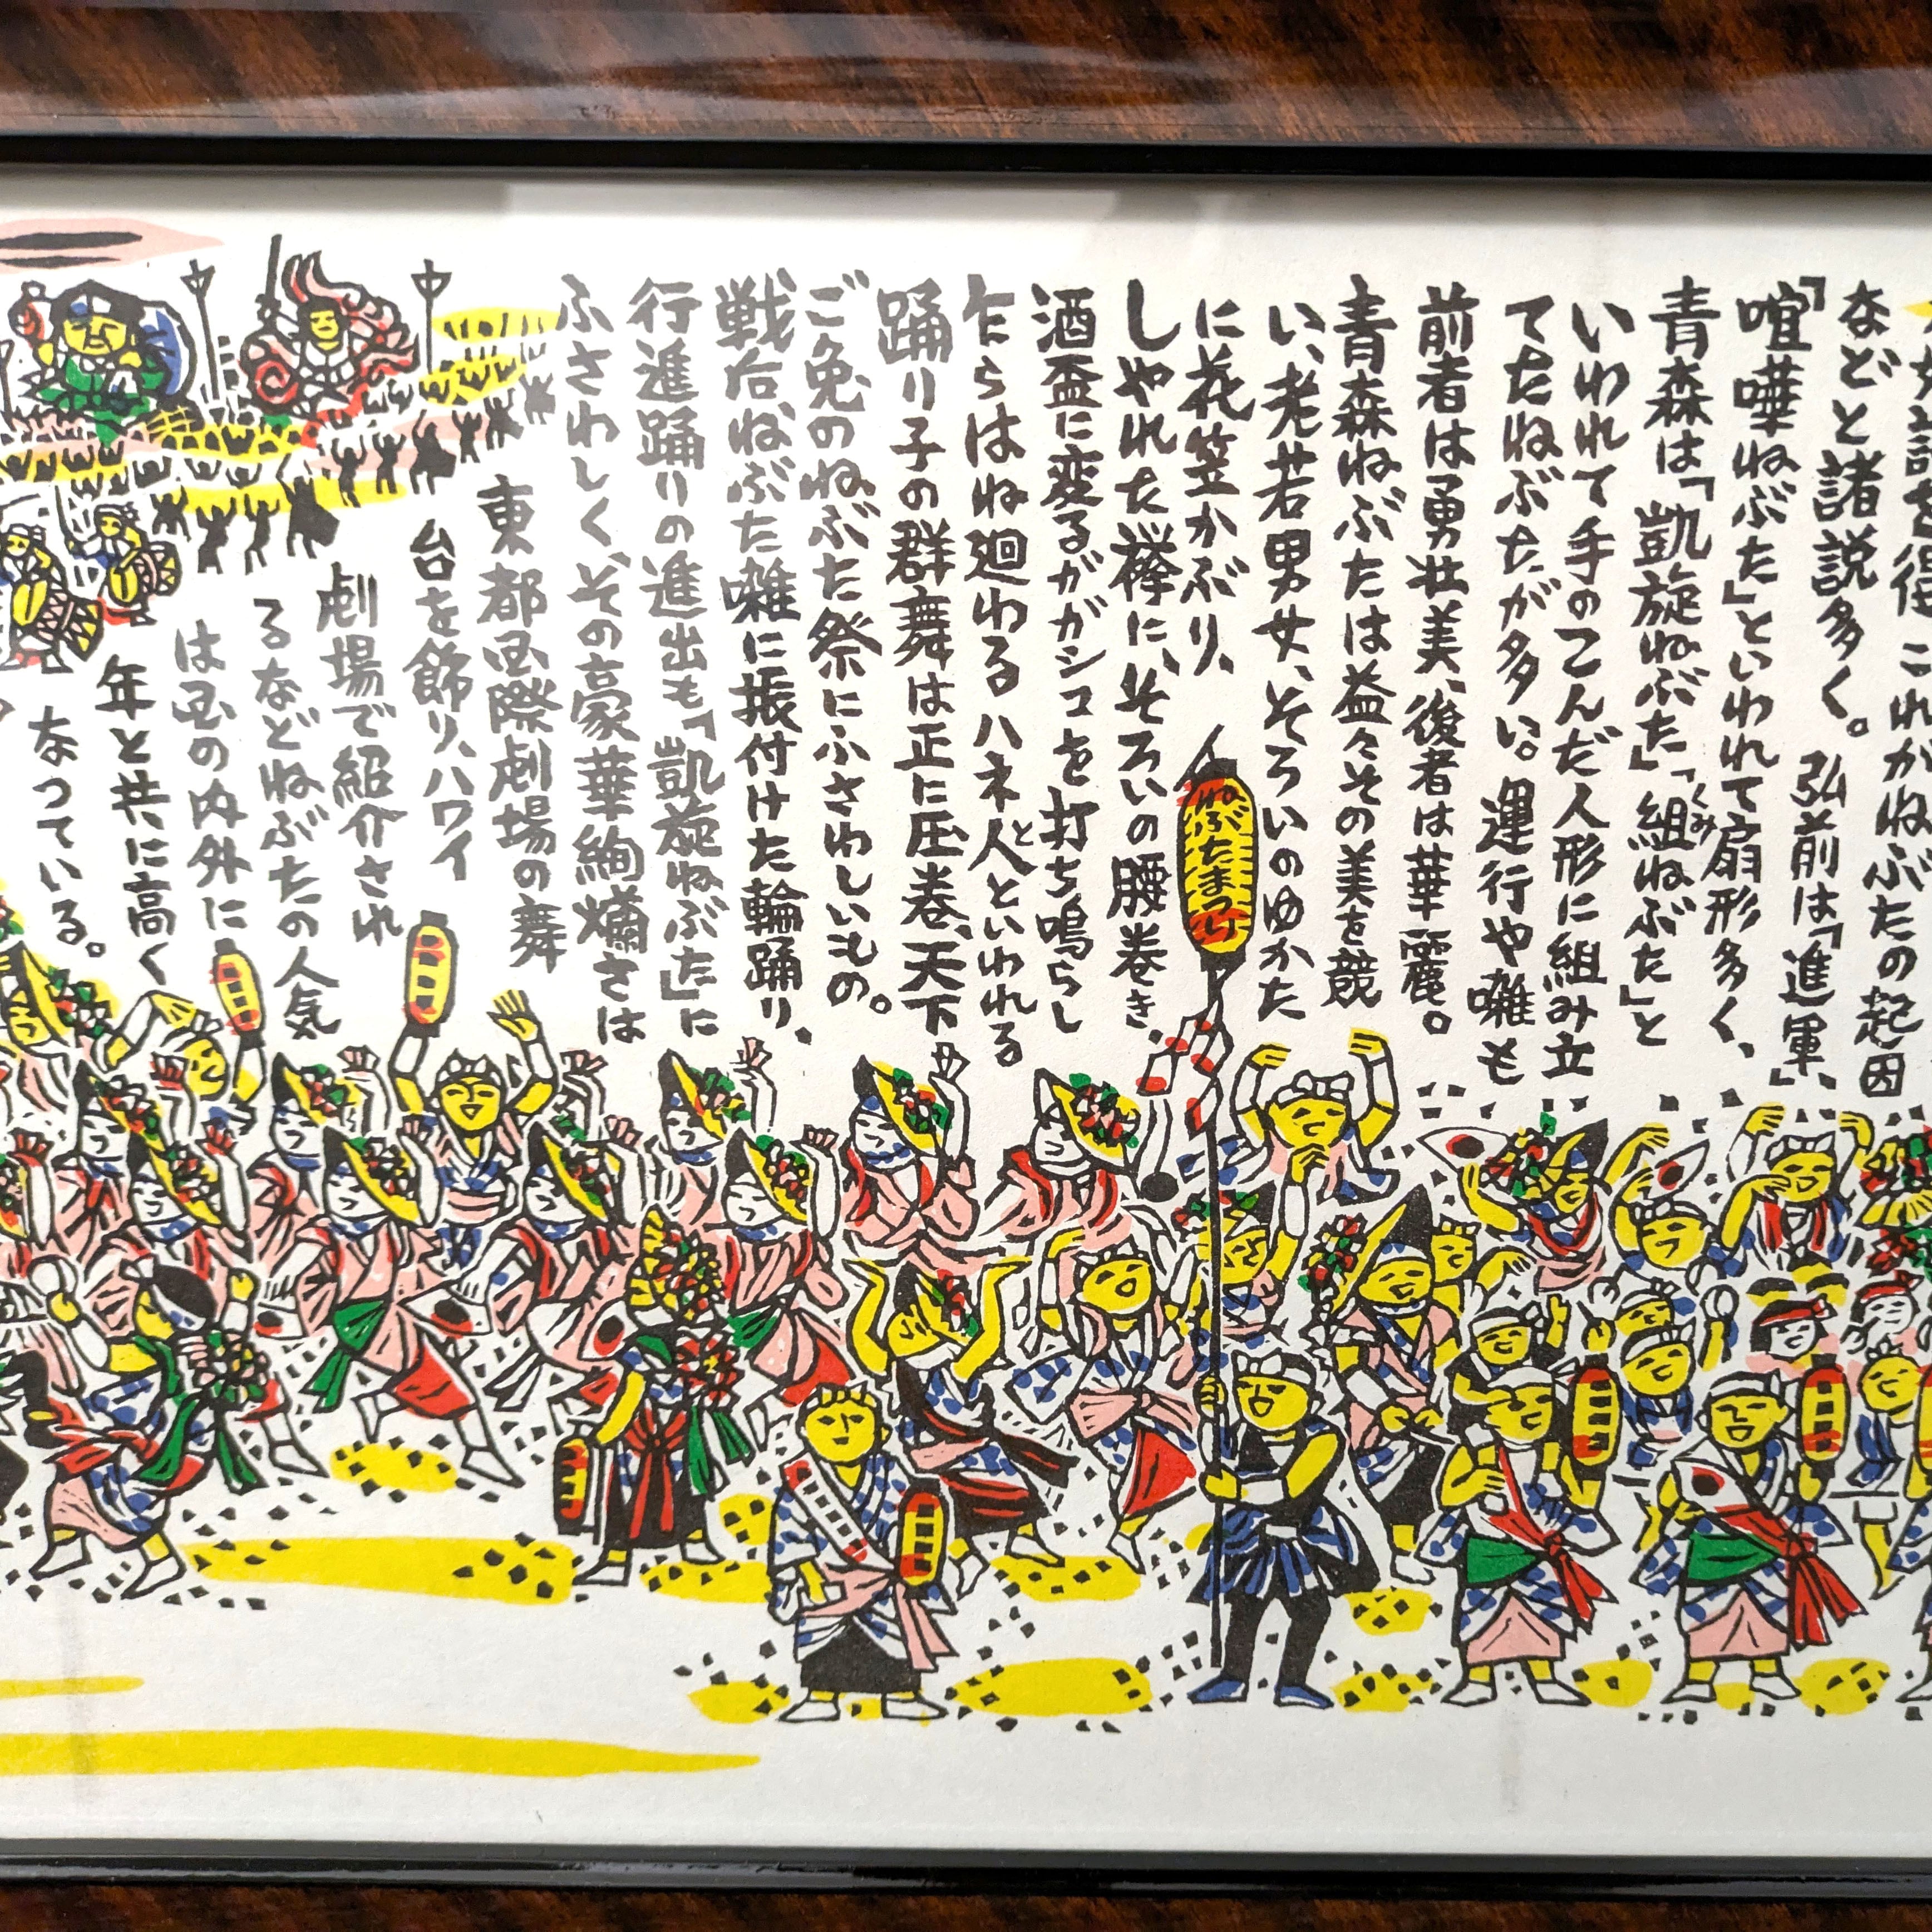 これがねぶたの起因
などと諸説多く。弘前は「進軍」、
「喧嘩ねぶた」といわれて扇形多く、
青森は「凱旋ねぶた」「組ねぶた」と
くみ
いわれて手のこんだ人形に組み立
てたねぶたが多い。運行や囃も
前者は勇壮美、後者は華麗。
青森ねぶたは益々その美を競
い、老若男女、そろいのゆかた
に花笠かぶり、
しやれた襷に、そろいの腰巻き、
酒盃に変るガガシコを打ち鳴らし
乍らはね廻わるハネ人といわれる
と
踊り子の群舞は正に圧巻、天下
ご免のねぶた祭にふさわしいもの。
戦后ねぶた囃に振付けた輪踊り、
行進踊りの進出も「凱旋ねぶた」に
ふさわしく、その豪華絢爛さは
東都国際劇場の舞
台を飾り、ハワイ
劇場で紹介され
るなどねぶたの人気
は国の内外に
年と共に高く
なつている。
ねぶたまつり